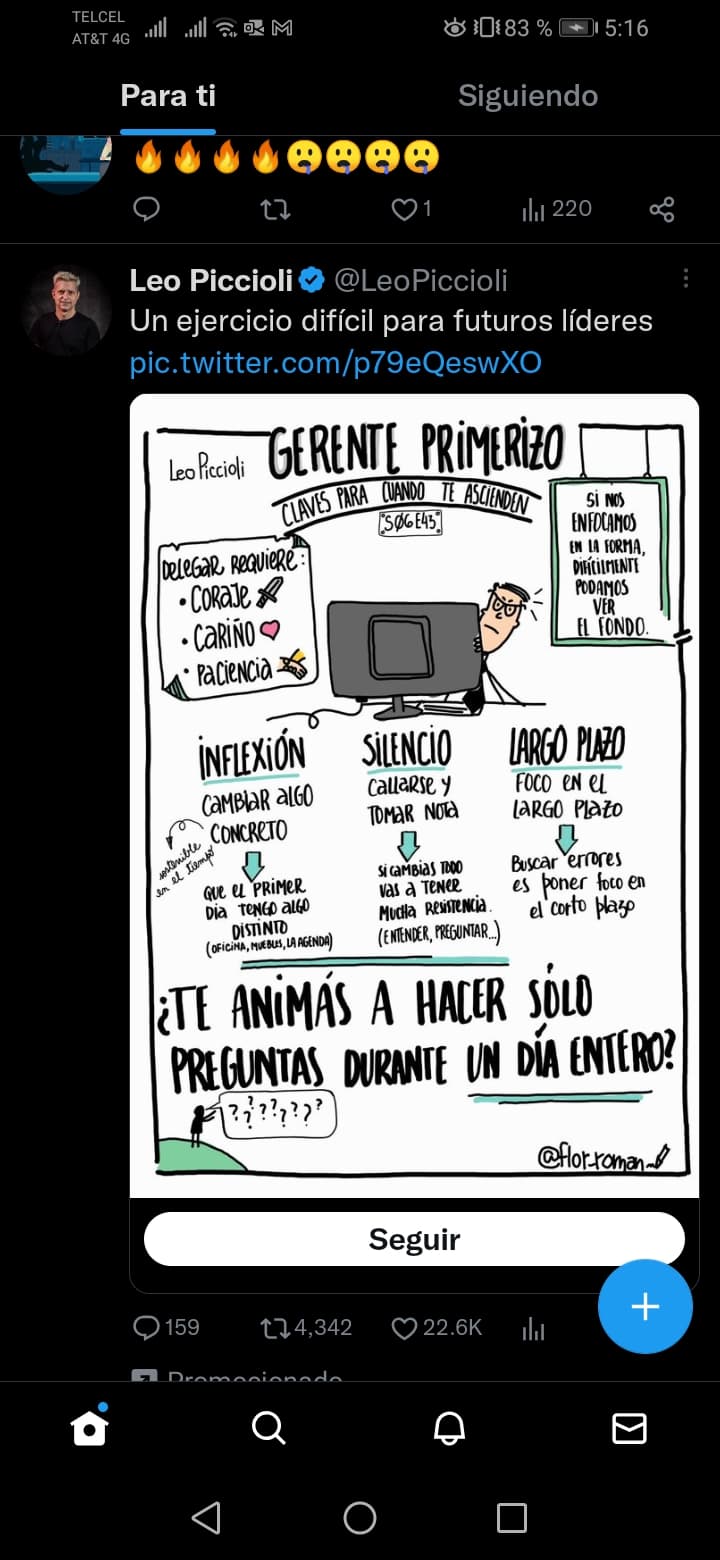 TELCEL
AT&T 4G
83 %
5:16
Para ti
Siguiendo
1
220
Leo Piccioli @LeoPiccioli
Un ejercicio difícil para futuros líderes
pic.twitter.com/p79eQeswXO
Leo Piccioli
GERENTE PRIMERIZO
CLAVES PARA CUANDO TE ASCIENDEN
S06E43
DELEGAR REQUIERE:
• CORAJE
• CARIÑO
• PACIENCIA
SI NOS
ENFOCAMOS
EN LA FORMA,
DIFÍCILMENTE
PODAMOS
VER
EL FONDO.
INFLEXIÓN
CAMBIAR ALGO
CONCRETO
sostenible
en el tiempo
QUE EL PRIMER
DÍA TENGO ALGO
DISTINTO
(OFICINA, MUEBLES, LA AGENDA)
SILENCIO
CALLARSE Y
TOMAR NOTA
SI CAMBIAS TODO
VAS A TENER
MUCHA RESISTENCIA.
(ENTENDER, PREGUNTAR...)
LARGO PLAZO
FOCO EN EL
LARGO PLAZO
Buscar errores
es poner foco en
el corto plazo
¿TE ANIMÁS A HACER SÓLO
PREGUNTAS DURANTE UN DÍA ENTERO?
???????
@flor.roman
Seguir
159
4,342
22.6K
Promocionado